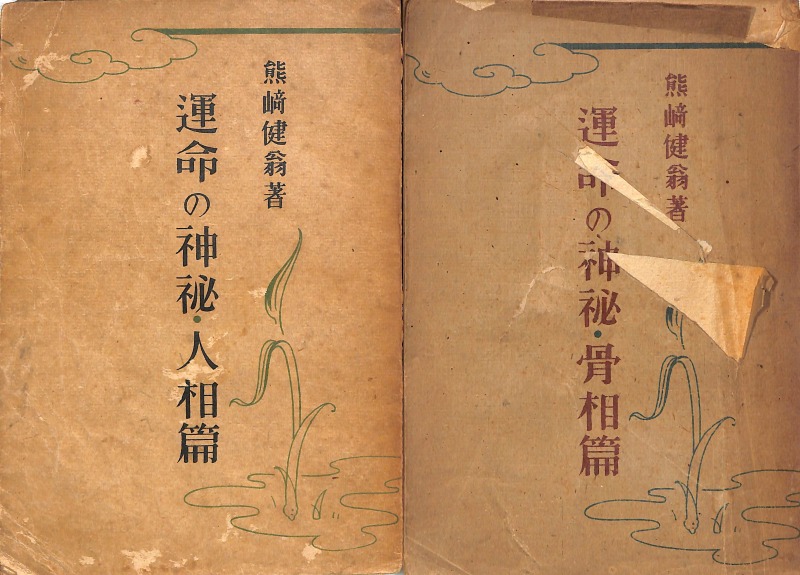 熊﨑健翁著
運命の神祕・人相篇
熊﨑健翁著
運命の神祕・骨相篇